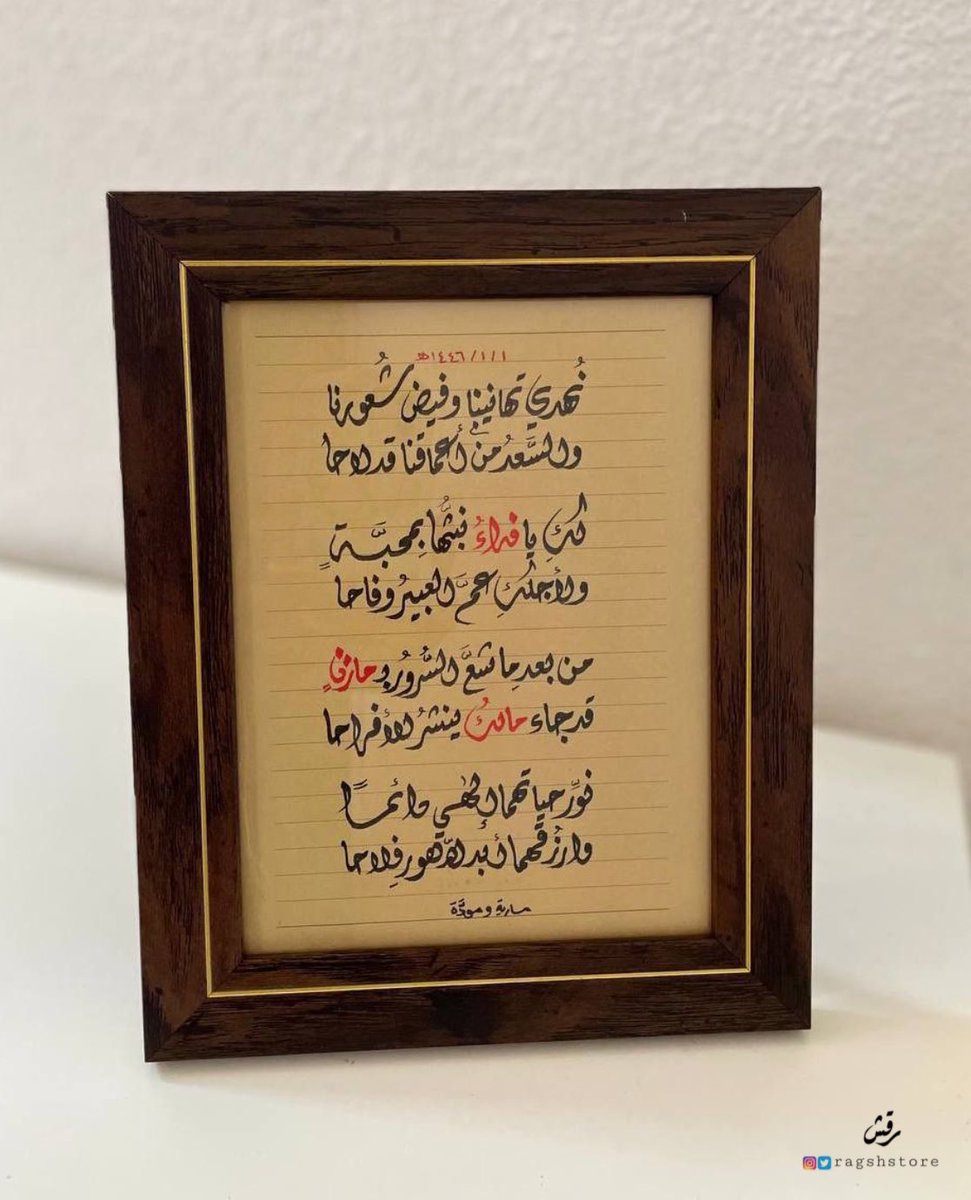 ١/١/١٤٤٦هـ
نُهدي تهانينا وفيض شُعورنا
والسَّعدُ من أعماقنا قد لاحا
لكِ يا فداءُ نبثُّها بمحبَّةٍ
ولأجلكِ عمَّ العبيرُ وفاحا
من بعدِ ما شعَّ السُّرورُ بـ مازنٍ
قد جاء مالكُ لينشرُ الأفراحا
نوِّر حياتهما إلهي دائمًا
وارزُقهما أبد الدّهور فِلاحا
مارية ومودَّة
رقش
ragshstore